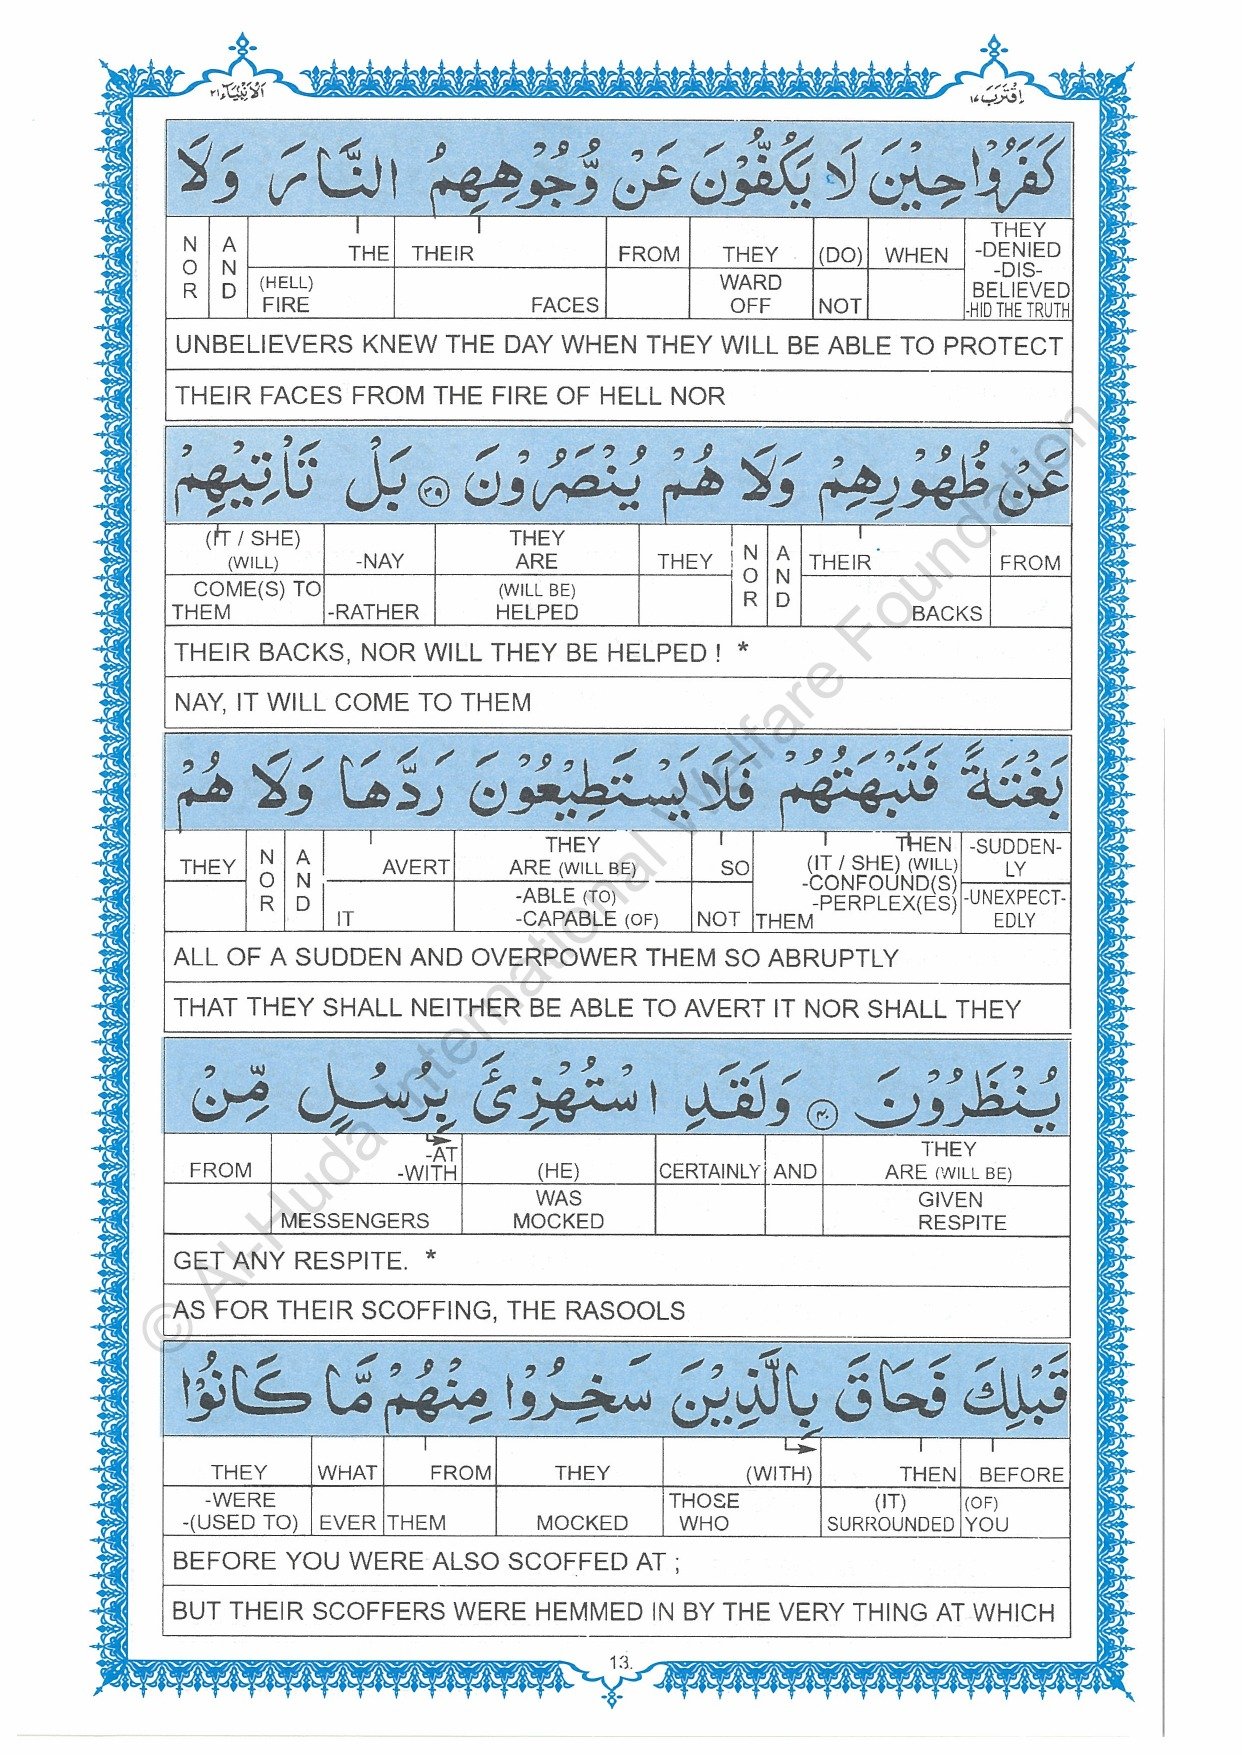 الانبياء ٢١
اقترب ١٧
كَفَرُوْا حِيْنَ لَا يَكُفُّوْنَ عَنْ وُّجُوْهِهِمُ النَّارَ وَلَا
THEY -DENIED -DIS-BELIEVED -HID THE TRUTH | WHEN | (DO) NOT | THEY WARD OFF | FROM | THEIR FACES | THE (HELL) FIRE | AND | NOR
UNBELIEVERS KNEW THE DAY WHEN THEY WILL BE ABLE TO PROTECT
THEIR FACES FROM THE FIRE OF HELL NOR
عَنْ ظُهُوْرِهِمْ وَلَا هُمْ يُنْصَرُوْنَ ٣٩ بَلْ تَأْتِيْهِمْ
FROM | THEIR BACKS | AND | NOR | THEY | THEY ARE (WILL BE) HELPED | -NAY -RATHER | (IT / SHE) (WILL) COME(S) TO THEM
THEIR BACKS, NOR WILL THEY BE HELPED ! *
NAY, IT WILL COME TO THEM
بَغْتَةً فَتَبْهَتُهُمْ فَلَا يَسْتَطِيْعُوْنَ رَدَّهَا وَلَا هُمْ
-SUDDEN-LY -UNEXPECT-EDLY | THEN (IT / SHE) (WILL) -CONFOUND(S) -PERPLEX(ES) THEM | SO NOT | THEY ARE (WILL BE) -ABLE (TO) -CAPABLE (OF) | AVERT IT | AND | NOR | THEY
ALL OF A SUDDEN AND OVERPOWER THEM SO ABRUPTLY
THAT THEY SHALL NEITHER BE ABLE TO AVERT IT NOR SHALL THEY
يُنْظَرُوْنَ ٤٠ وَلَقَدِ اسْتُهْزِئَ بِرُسُلٍ مِّنْ
THEY ARE (WILL BE) GIVEN RESPITE | AND | CERTAINLY | (HE) WAS MOCKED | -AT -WITH MESSENGERS | FROM
GET ANY RESPITE. *
AS FOR THEIR SCOFFING, THE RASOOLS
قَبْلِكَ فَحَاقَ بِالَّذِيْنَ سَخِرُوْا مِنْهُمْ مَّا كَانُوْا
BEFORE (OF) YOU | THEN (IT) SURROUNDED | (WITH) THOSE WHO | THEY MOCKED | FROM THEM | WHAT EVER | THEY -WERE -(USED TO)
BEFORE YOU WERE ALSO SCOFFED AT ;
BUT THEIR SCOFFERS WERE HEMMED IN BY THE VERY THING AT WHICH
13.
© Al-Huda International Welfare Foundation